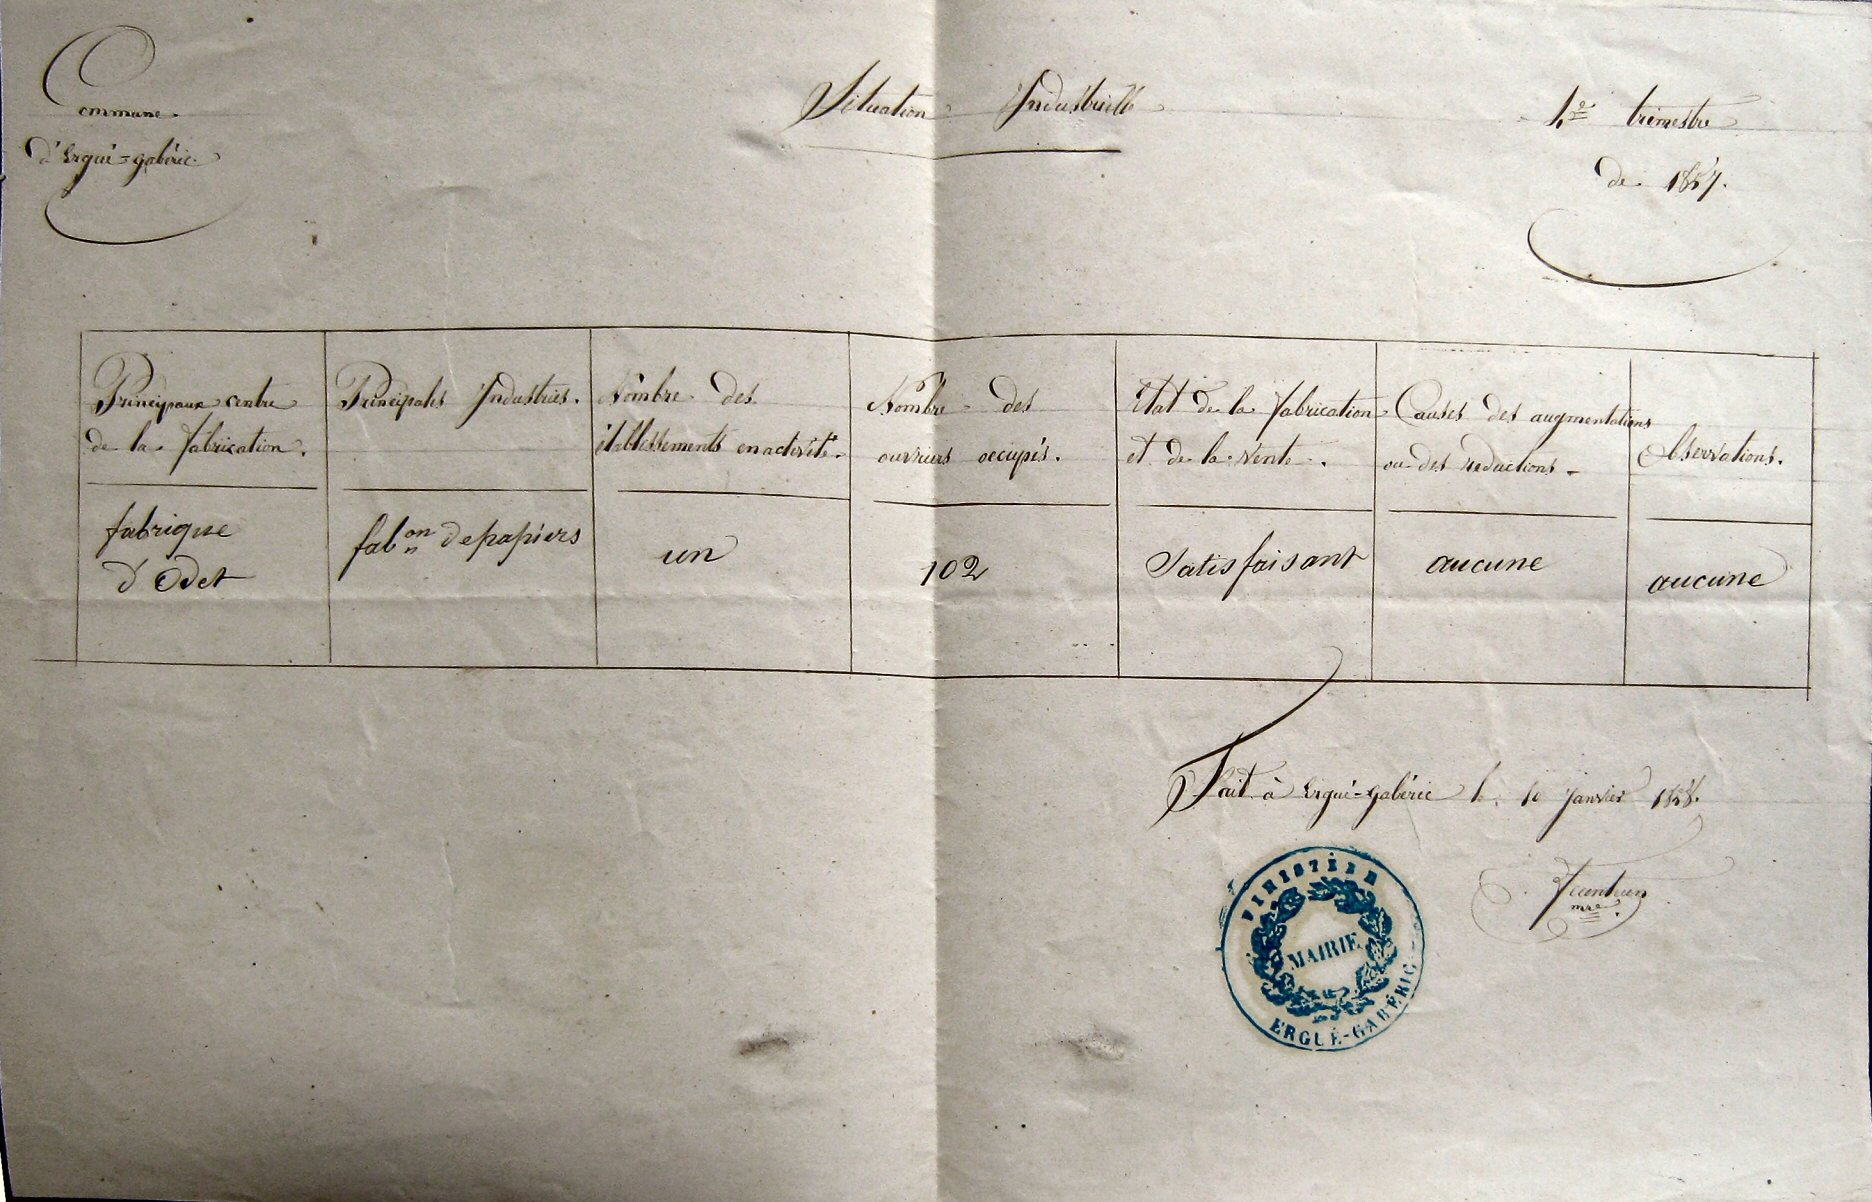 Commune
d'Ergué=gabéric.
Situation Industrielle
4e trimestre
de 1857.
Principaux centre
de la fabrication.
Principales Industries.
Nombre des
établissements en activité.
Nombre des
ouvriers occupés.
Etat de la fabrication
et de la vente.
Causes des augmentations
ou des réductions.
Observations.
fabrique
d'Odet
fabon de papiers
un
102
Satisfaisant
aucune
aucune
Fait à Ergué=gabéric le 10 Janvier 1858.
mre
FINISTÈRE
MAIRIE
ERGUÉ-GABÉRIC